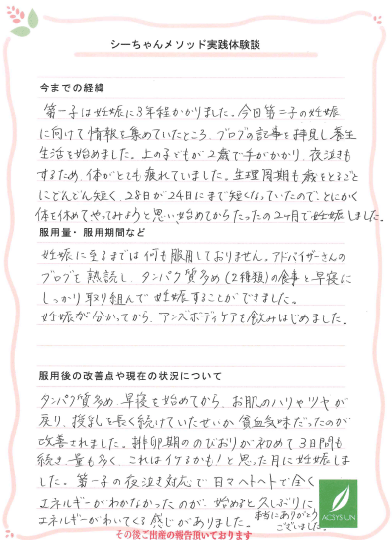 シーちゃんメソッド実践体験談
今までの経緯
第一子は妊娠に3年程かかりました。今回第二子の妊娠
に向けて情報を集めていたところ、ブログの記事を拝見し養生
生活を始めました。上の子どもが2歳で手がかかり、夜泣きも
するため、体がとても疲れていました。生理周期も歳をとるごと
にどんどん短く、28日が24日にまで短くなっていたので、とにかく
体を休めてやってみようと思い始めてからたったの2ヶ月で妊娠しました。
服用量・服用期間など
妊娠に至るまでは何も服用しておりません。アドバイザーさんの
ブログを熟読し、タンパク質多め(2種類)の食事と早寝に
しっかり取り組んで妊娠することができました。
妊娠が分かってから、アンズボディケアを飲みはじめました。
服用後の改善点や現在の状況について
タンパク質多め、早寝を始めてから、お肌のハリやツヤが
戻り、授乳を長く続けていたせいか貧血気味だったのが
改善されました。排卵期ののびおりが初めて3日間も
続き、量も多く、これはイケるかも!と思った月に妊娠しま
した。第一子の夜泣き対応で日々ヘトヘトで全く
エネルギーがわかなかったのが、始めると久しぶりに
エネルギーがわいてくる感じがありました。本当にありがとう
ございました。
ACSYSUN
その後ご出産の報告頂いております